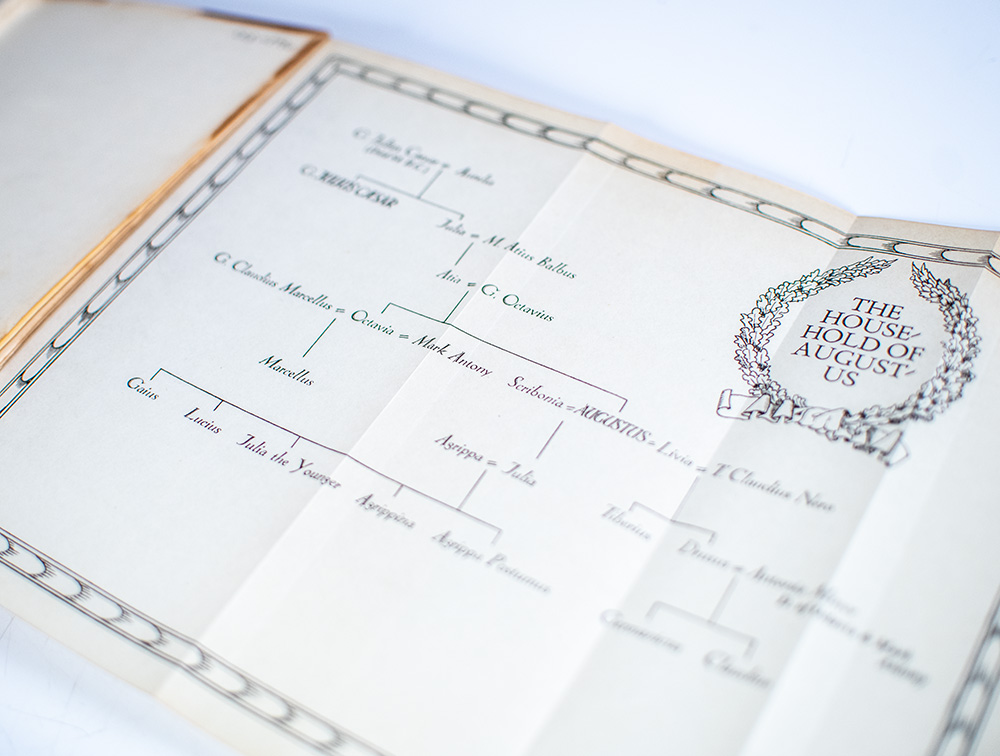 G. Julius Caesar = Aurelia
(Died 84 B.C.)
G. JULIUS CÆSAR
Julia = M. Atius Balbus
Atia = G. Octavius
G. Claudius Marcellus = Octavia = Mark Antony
Marcellus
Scribonia = AUGUSTUS = Livia = T. Claudius Nero
Agrippa = Julia
Gaius
Lucius
Julia the Younger
Agrippina
Agrippa Postumus
Tiberius
Drusus = Antonia Minor
Germanicus
Claudius
THE
HOUSE-
HOLD OF
AUGUST-
US